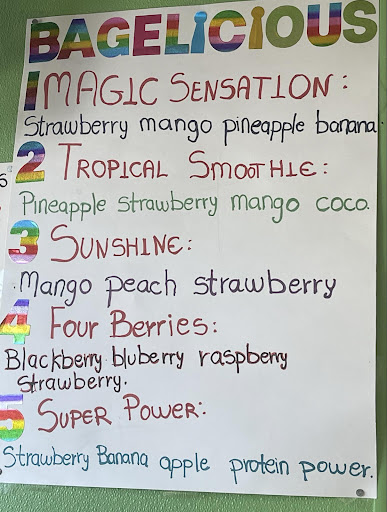 BAGELICIOUS
1 MAGIC SENSATION:
Strawberry mango pineapple banana.
2 TROPICAL SMOOTHIE:
Pineapple strawberry mango coco.
3 SUNSHINE:
Mango peach strawberry
4 FOUR BERRIES:
Blackberry bluberry raspberry
strawberry.
5 SUPER POWER:
Strawberry Banana apple protein power.